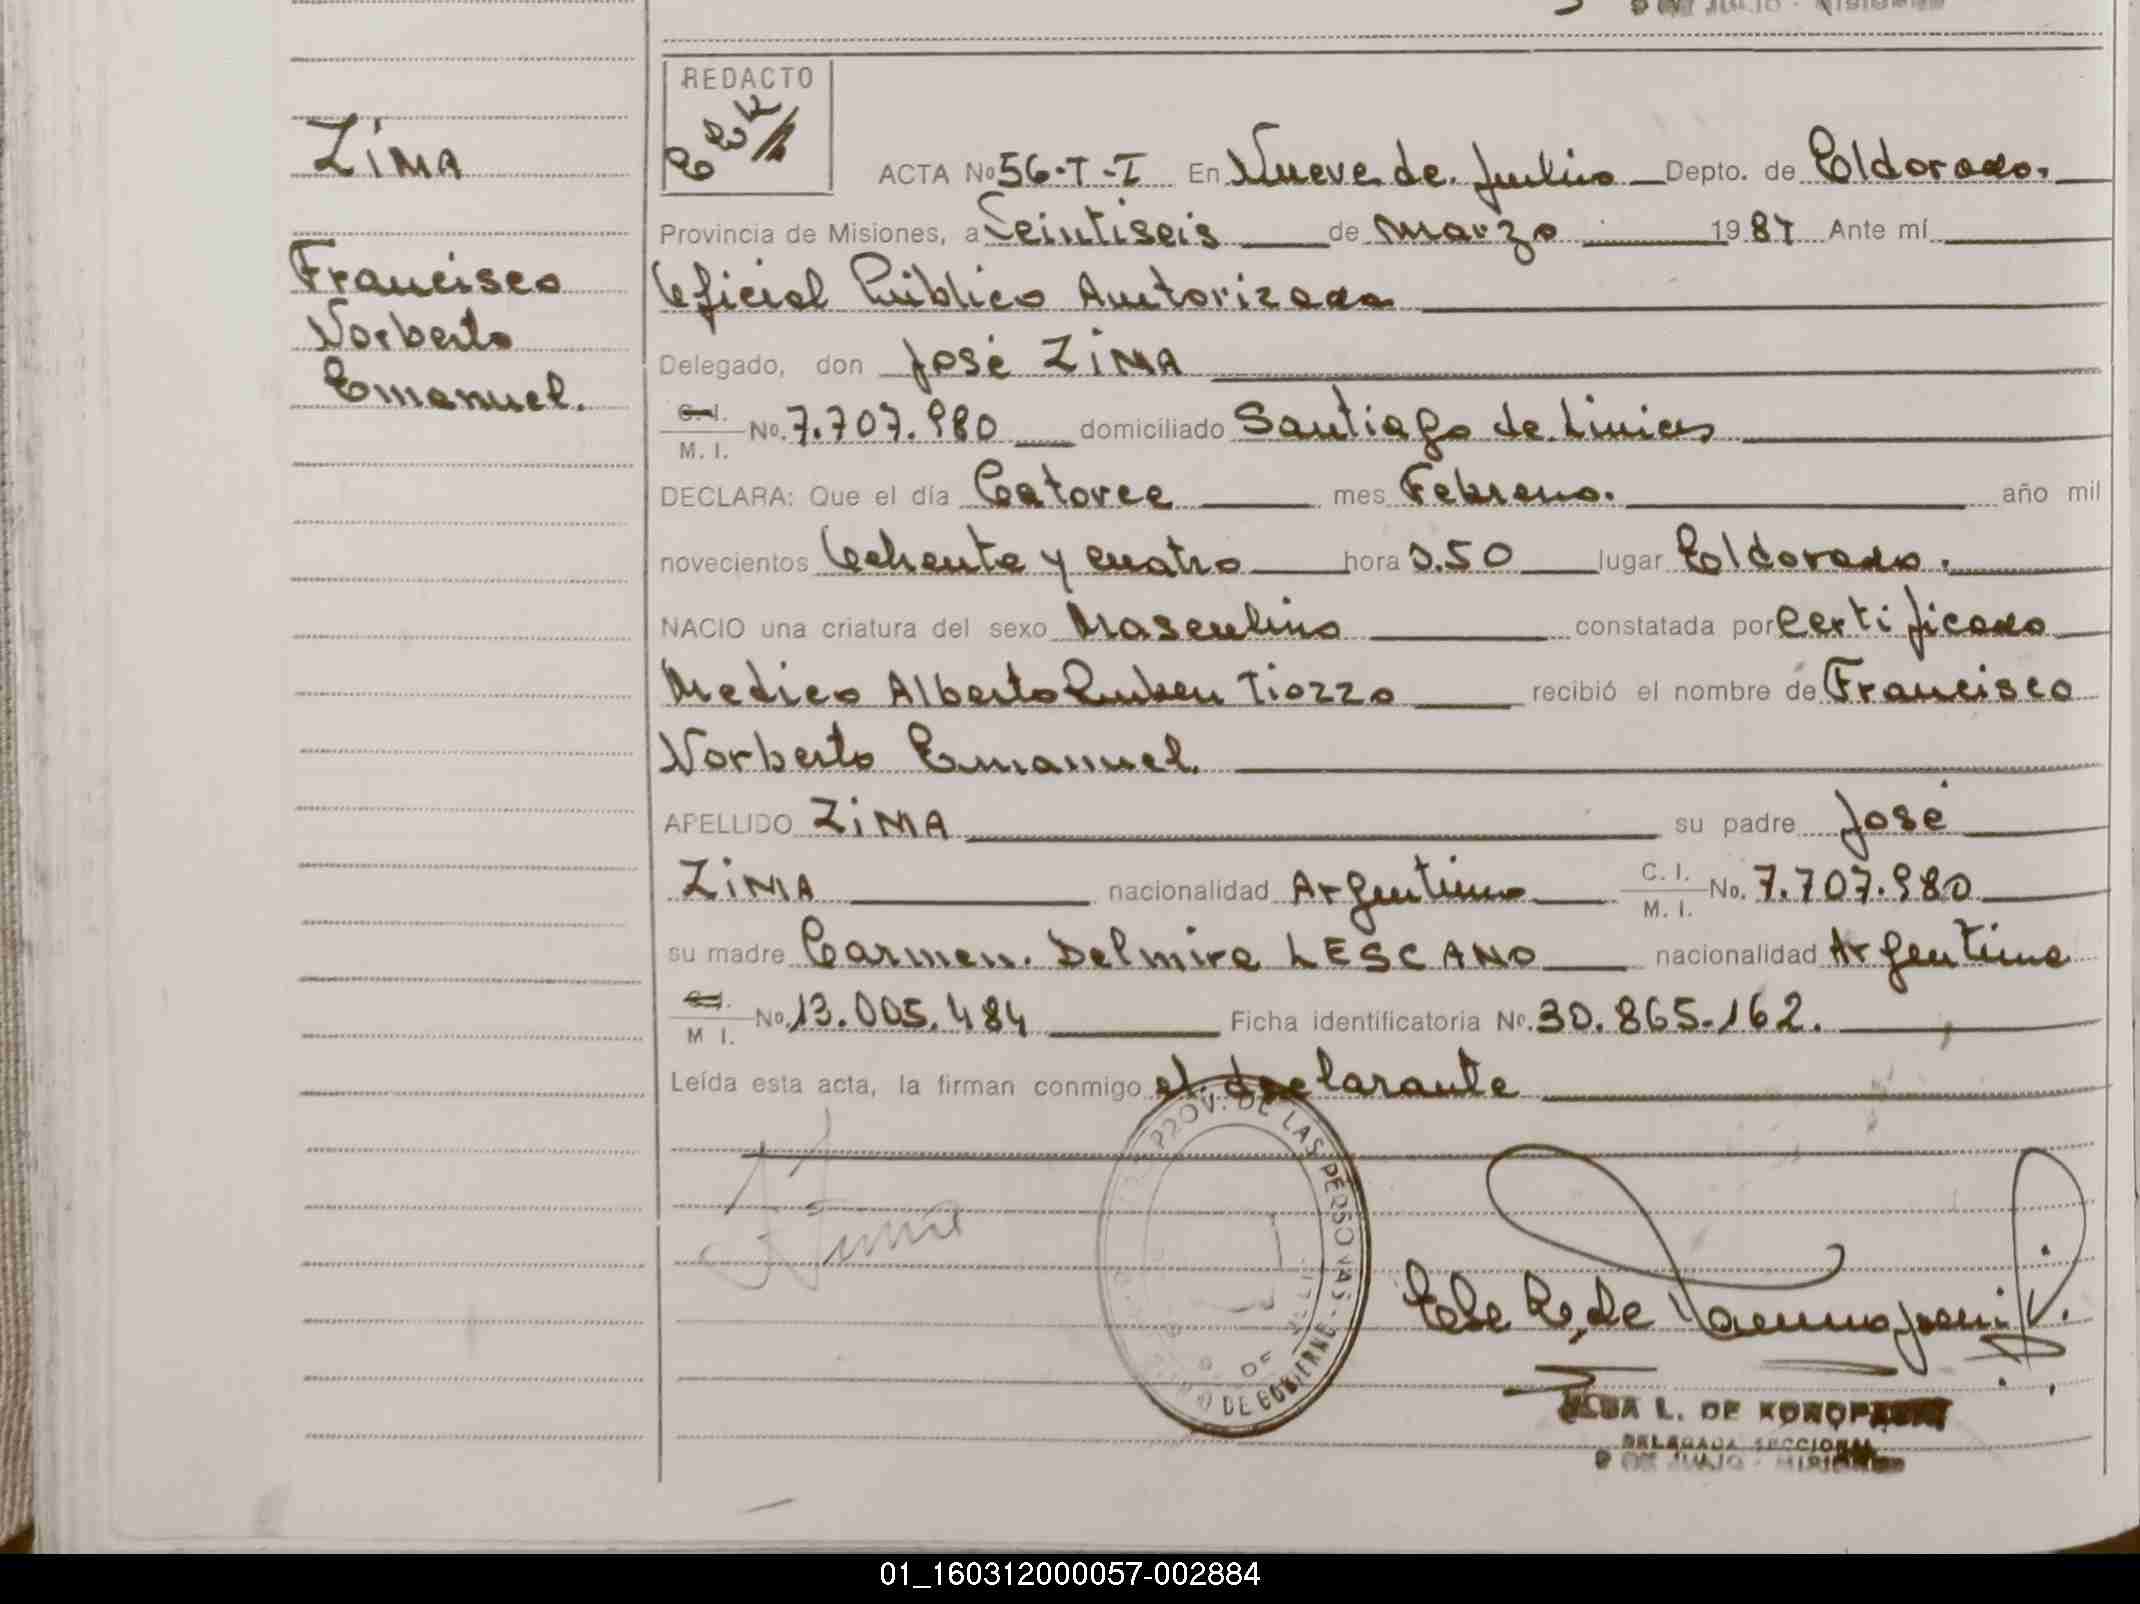 REDACTO
ZIMA
ACTA Nº 56-T-I En Nueve de Julio Depto. de Eldorado.
Provincia de Misiones, a Veintiseis de Marzo 1984 Ante mí
Francisco
Norberto
Emanuel.
Oficial Público Autorizada
Delegado, don José ZIMA
C. I.
M. I. No. 7.707.980 domiciliado Santiago de Liniers
DECLARA: Que el día Catorce mes Febrero. año mil
novecientos Ochenta y cuatro hora 3.50 lugar Eldorado.
NACIO una criatura del sexo Masculino constatada por Certificado
Medico Alberto Ruben Tiozzo recibió el nombre de Francisco
Norberto Emanuel.
APELLIDO ZIMA su padre José
ZIMA nacionalidad Argentino C. I.
M. I. No. 7.707.980
su madre Carmen. Delmira LESCANO nacionalidad Argentina
M I. No. 13.005.484 Ficha identificatoria Nº. 30.865.162.
Leída esta acta, la firman conmigo el declarante
PROV. DE LAS PERSONAS
DE GOBIERNO
L. DE
DELEGADA SECCIONAL
9 DE JULIO - MISIONES
01_160312000057-002884